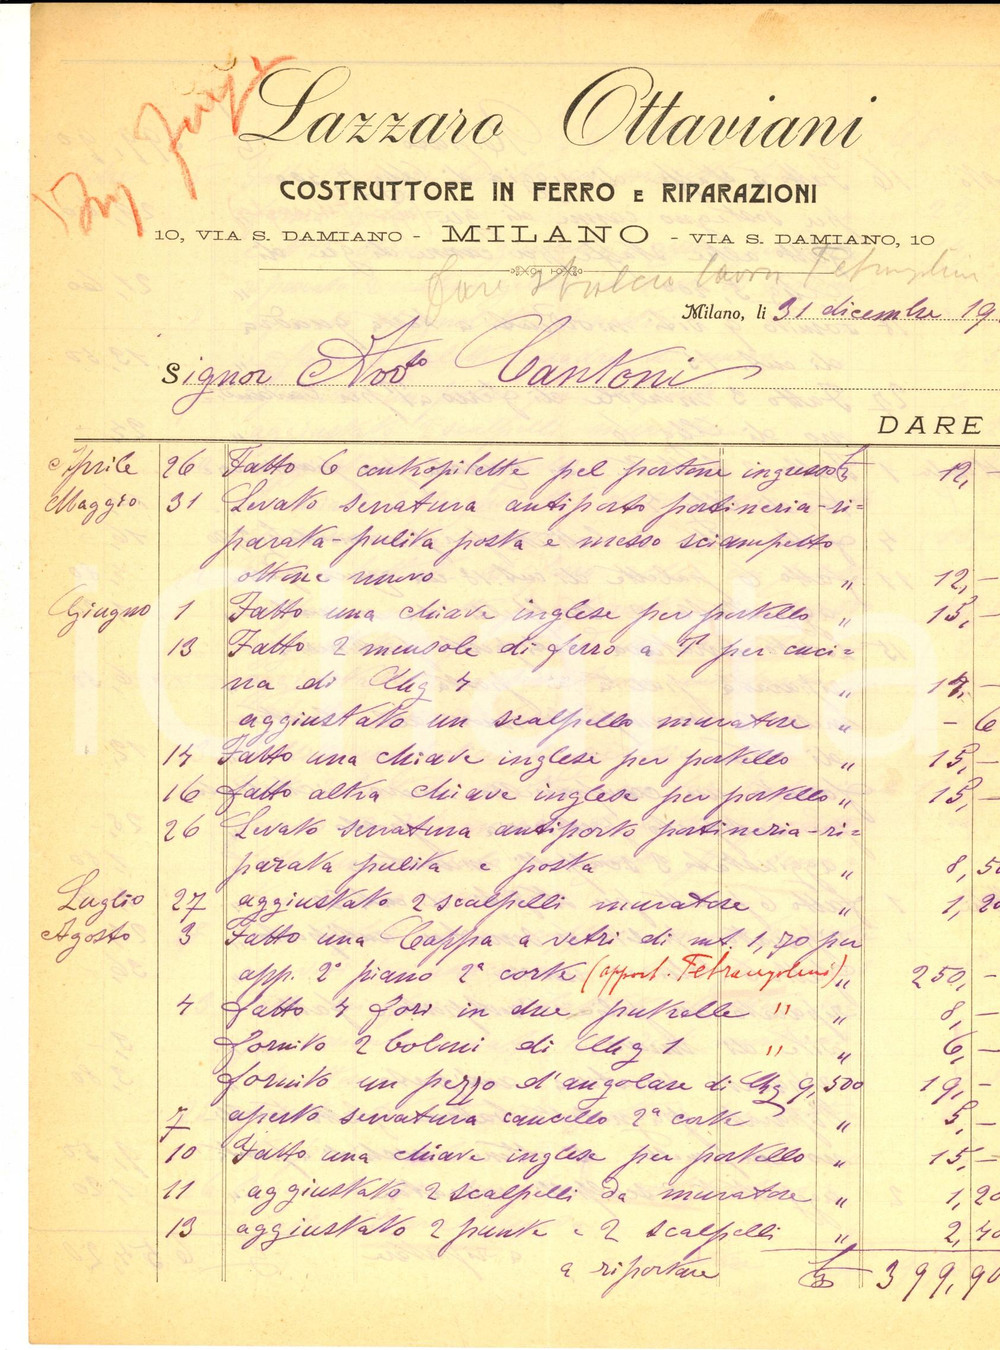 Lazzaro Ottaviani
COSTRUTTORE IN FERRO E RIPARAZIONI
10, VIA S. DAMIANO - MILANO - VIA S. DAMIANO, 10
Fare stralcio lavori Fetrangolini
Milano, li 31 dicembre 19
Signor Avv.to Cantoni
DARE
Aprile 26 Fatto 6 contropilette pel portone ingresso £ 12,-
Maggio 31 Levato serratura antiporto portineria-ri=
parata-pulita posta e messo sciampetto
ottone nuovo " 12,-
Giugno 1 Fatto una chiave inglese per portello " 15,-
13 Fatto 2 mensole di ferro a T per cuci=
na di Chg 4 " 14.-
aggiustato un scalpello muratore " - 6
14 Fatto una chiave inglese per portello " 15,-
16 fatto altra chiave inglese per portello " 15,-
26 Levato serratura antiporto portineria-ri=
parata pulita e posta " 8,50
Luglio 27 aggiustato 2 scalpelli muratore " 1,20
Agosto 3 Fatto una Cappa a vetri di mt. 1,70 per
app. 2° piano 2ª corte (appart. Fetrangolini) " 250,-
4 fatto 4 fori in due putrelle " " 8,-
fornito 2 boloni di Chg 1 " " 6,-
fornito un pezzo d'angolare di Chg 9,500 19,-
7 aperto serratura cancello 2ª corte " 5,-
10 Fatto una chiave inglese per portello " 15,-
11 aggiustato 2 scalpelli da muratore " 1,20
13 aggiustato 2 punte e 2 scalpelli " 2,40
a riportare £ 399,90